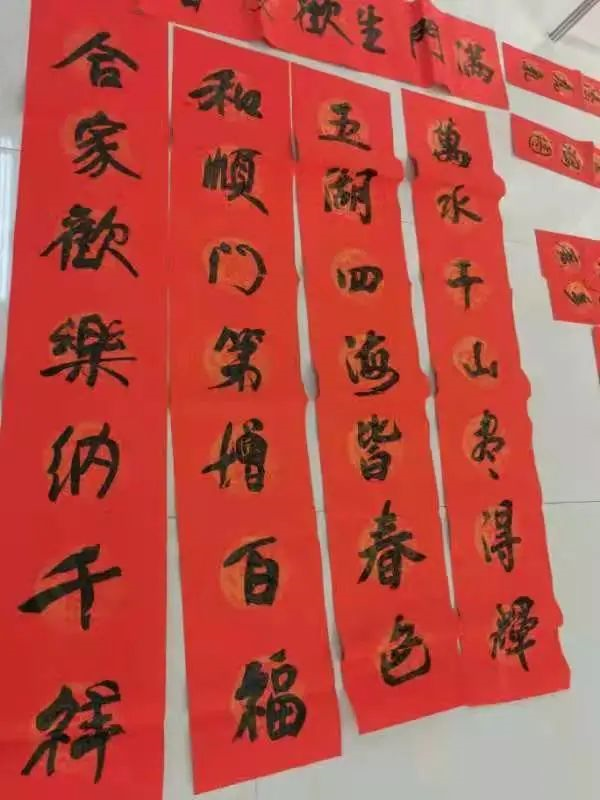 满门生歡
萬水千山尽得輝
五湖四海皆春色
和順门第增百福
合家歡樂纳千祥